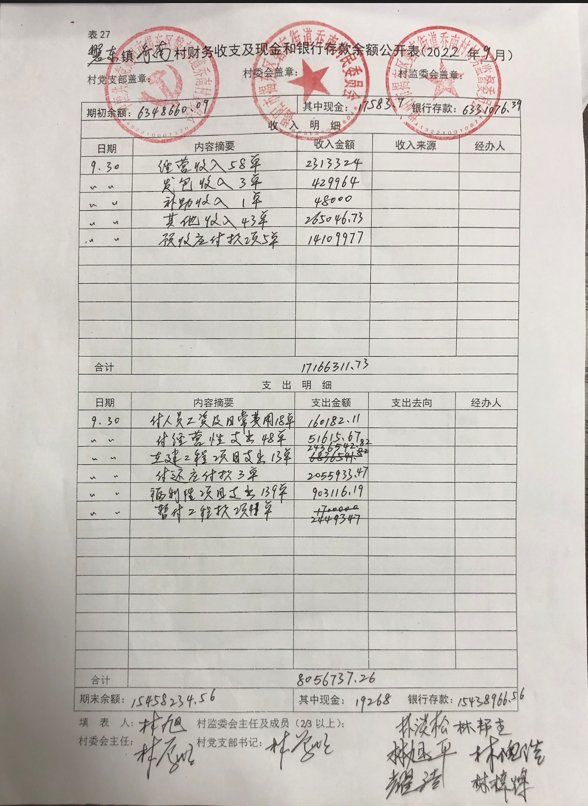 表 27
磐东镇 乔南 村财务收支及现金和银行存款余额公开表(2022 年 9 月)
村党支部盖章： 村委会盖章： 村监委会盖章：
期初余额：6348660.09 其中现金：17583.7 银行存款：6331076.39
收 入 明 细
日期 内容摘要 收入金额 收入来源 经办人
9.30 经营收入 58单 2313324
〃 〃 发包收入 3单 429964
〃 〃 补助收入 1单 48000
〃 〃 其他收入 43单 265046.73
〃 〃 预收应付款项5单 14109977
合计 17166311.73
支 出 明 细
日期 内容摘要 支出金额 支出去向 经办人
9.30 付人员工资及日常费用18单 160182.11
〃 〃 付经营性支出 48单 51615.67
〃 〃 在建工程项目支出 13单 2436542.82
〃 〃 付还应付款 3单 2055933.47
〃 〃 福利性项目支出 139单 903116.19
〃 〃 暂付工程款项 单 2449347
合计 8056737.26
期末余额：15458234.56 其中现金：19268 银行存款：15438966.56
填 表 人：林旭 村监委会主任及成员（2/3 以上）：
村委会主任： 村党支部书记：